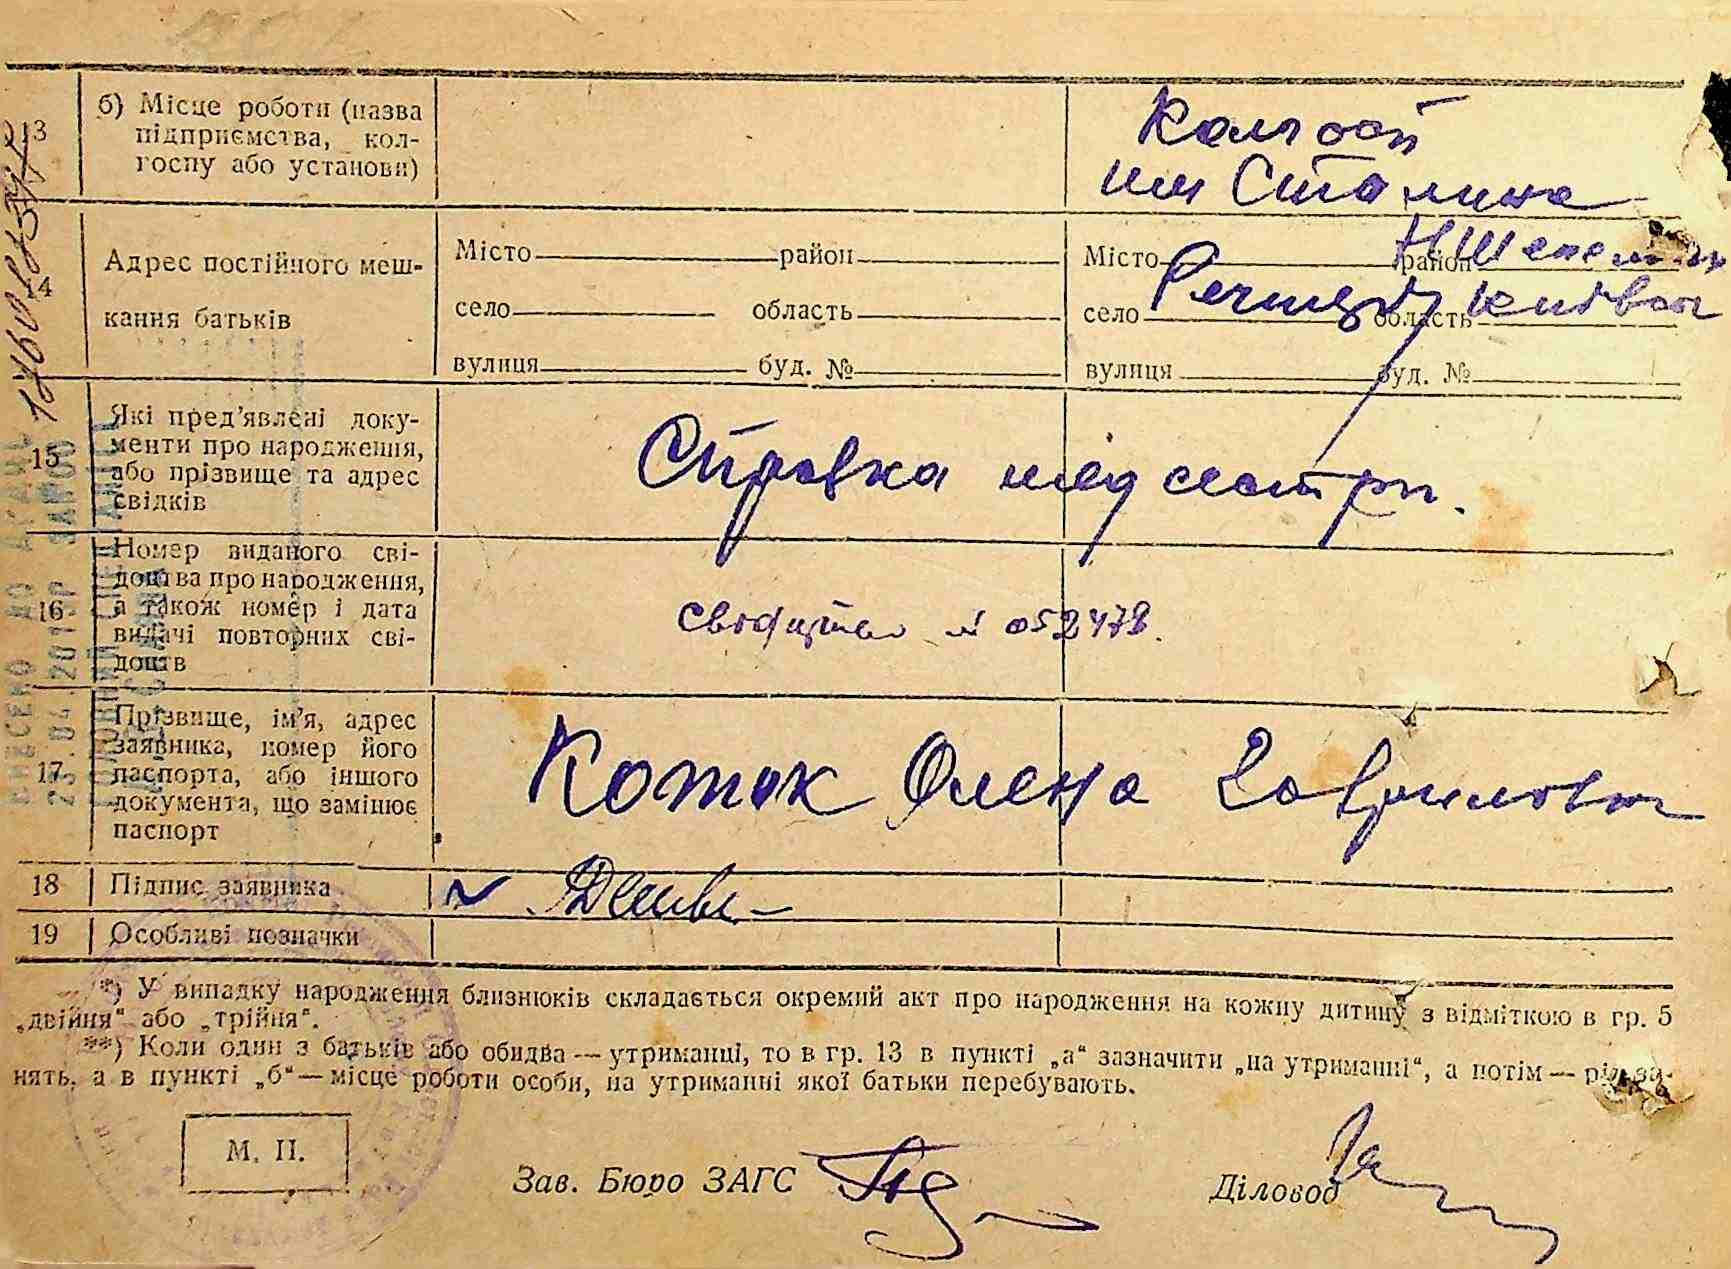 13
б) Місце роботи (назва
підприємства, кол-
госпу або установи)
Колгосп
им Сталина
14
Адрес постійного меш-
кання батьків
Місто район
село область
вулиця буд. №
Місто район
село область
вулиця буд. №
15
Які пред'явлені доку-
менти про народження,
або прізвище та адрес
свідків
Справка мед сестри.
16
Номер виданого сві-
доцтва про народження,
а також номер і дата
видачі повторних сві-
доцтв
№ 052478.
17
Прізвище, ім'я, адрес
заявника, номер його
паспорта, або іншого
документа, що замінює
паспорт
Коток Олена Гавриловна
18 Підпис заявника
19 Особливі позначки
*) У випадку народження близнюків складається окремий акт про народження на кожну дитину з відміткою в гр. 5
„двійня“ або „трійня“.
**) Коли один з батьків або обидва — утриманці, то в гр. 13 в пункті „а“ зазначити „на утриманні“, а потім — рід за-
нять, а в пункті „б“ — місце роботи особи, на утриманні якої батьки перебувають.
М. П.
Зав. Бюро ЗАГС
Діловод